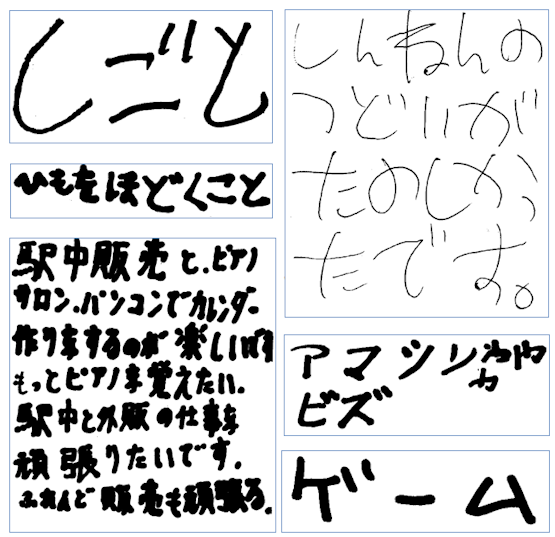 しごと
ひもをほどくこと
駅中販売と、ピアノ
サロン、パソコンでカレンダー
作りをするのが楽しいです
もっとピアノを覚えたい。
駅中と外販の仕事を
頑張りたいです。
ふれんど販売も頑張る。
しんねんの
つどいが
たのしかっ
たです。
アマツリ
ビズ
ゲーム